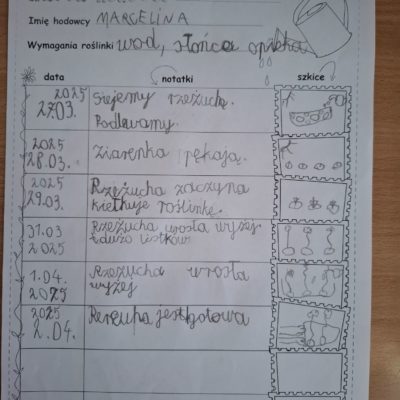 Imię hodowcy MARCELINA
Wymagania roślinki wod, słońca opieka
data notatki szkice
2025
27.03. Siejemy rzeżuchę.
Podlewamy.
2025
28.03. Ziarenka pękają.
2025
29.03. Rzeżucha zaczyna
kiełkuje roślinkę.
31.03 Rzeżucha wrosła wyżej
2025 dużo listków
1.04. Rzeżucha wrosła
2025 wyżej
2025
2.04. jest gotowa